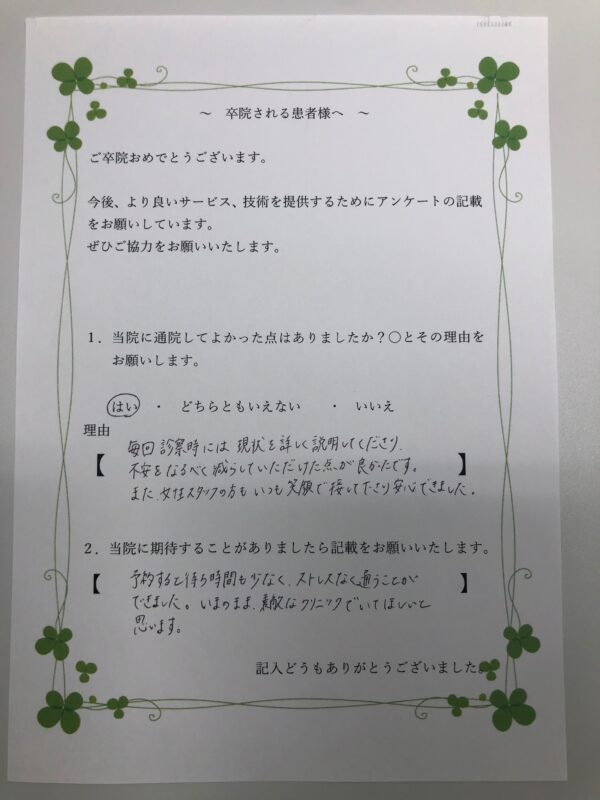 ～　卒院される患者様へ　～
ご卒院おめでとうございます。
今後、より良いサービス、技術を提供するためにアンケートの記載
をお願いしています。
ぜひご協力をお願いいたします。
１．当院に通院してよかった点はありましたか？〇とその理由を
お願いします。
はい　・　どちらともいえない　　・　いいえ
理由
【 毎回診察時には現状を詳しく説明してくださり、
不安をなるべく減らしていただけた点が良かったです。 】
また、女性スタッフの方もいつも笑顔で接して下さり安心できました。
２．当院に期待することがありましたら記載をお願いいたします。
【 予約すると待ち時間も少なく、ストレスなく通うことが 】
できました。いまのまま、素敵なクリニックでいてほしいと
思います。
記入どうもありがとうございました。